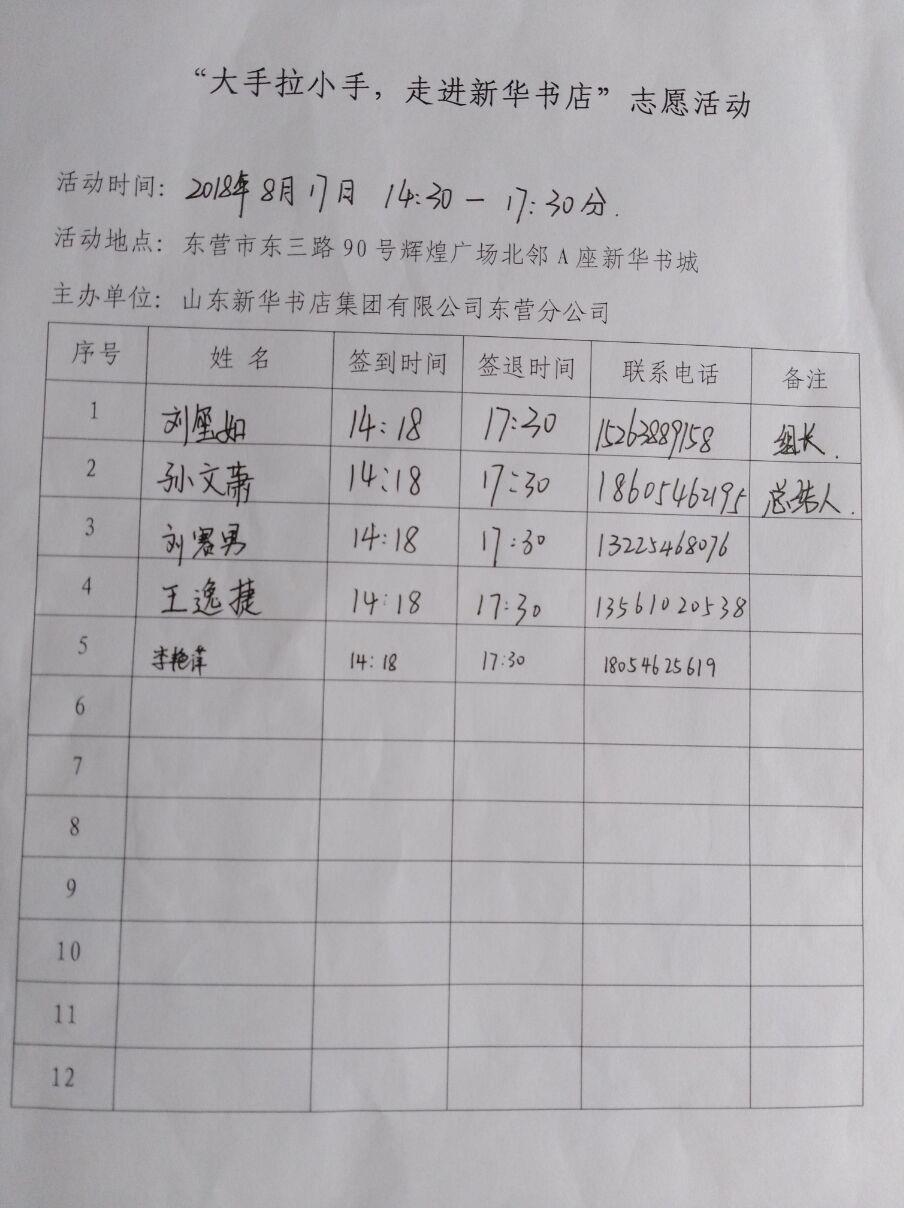 “大手拉小手，走进新华书店”志愿活动
活动时间：2018年8月17日 14:30—17:30分.
活动地点：东营市东三路90号辉煌广场北邻A座新华书城
主办单位：山东新华书店集团有限公司东营分公司
序号 姓名 签到时间 签退时间 联系电话 备注
1 刘 如 14:18 17:30 15263889158 组长.
2 孙文萧 14:18 17:30 18605462195 总结人.
3 刘 男 14:18 17:30 13225468076
4 王逸捷 14:18 17:30 13561020538
5 李艳萍 14:18 17:30 18054625619
6
7
8
9
10
11
12